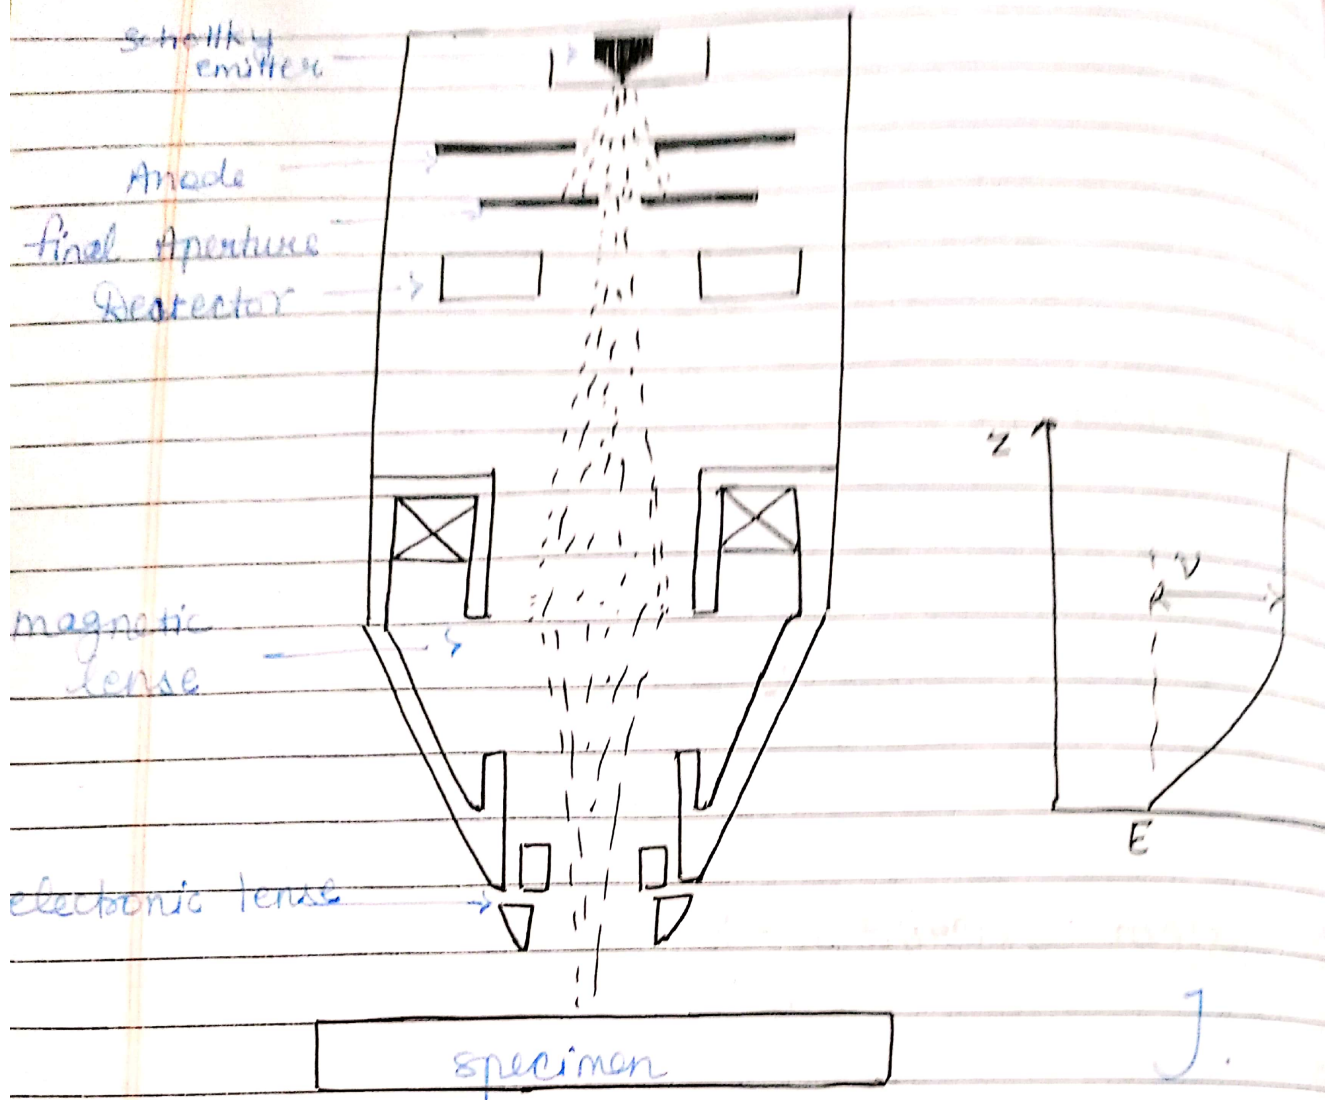 schottky
emitter
Anode
final Aperture
Deatector
magnetic
lense
electronic lense
specimen
z
V
E
J.